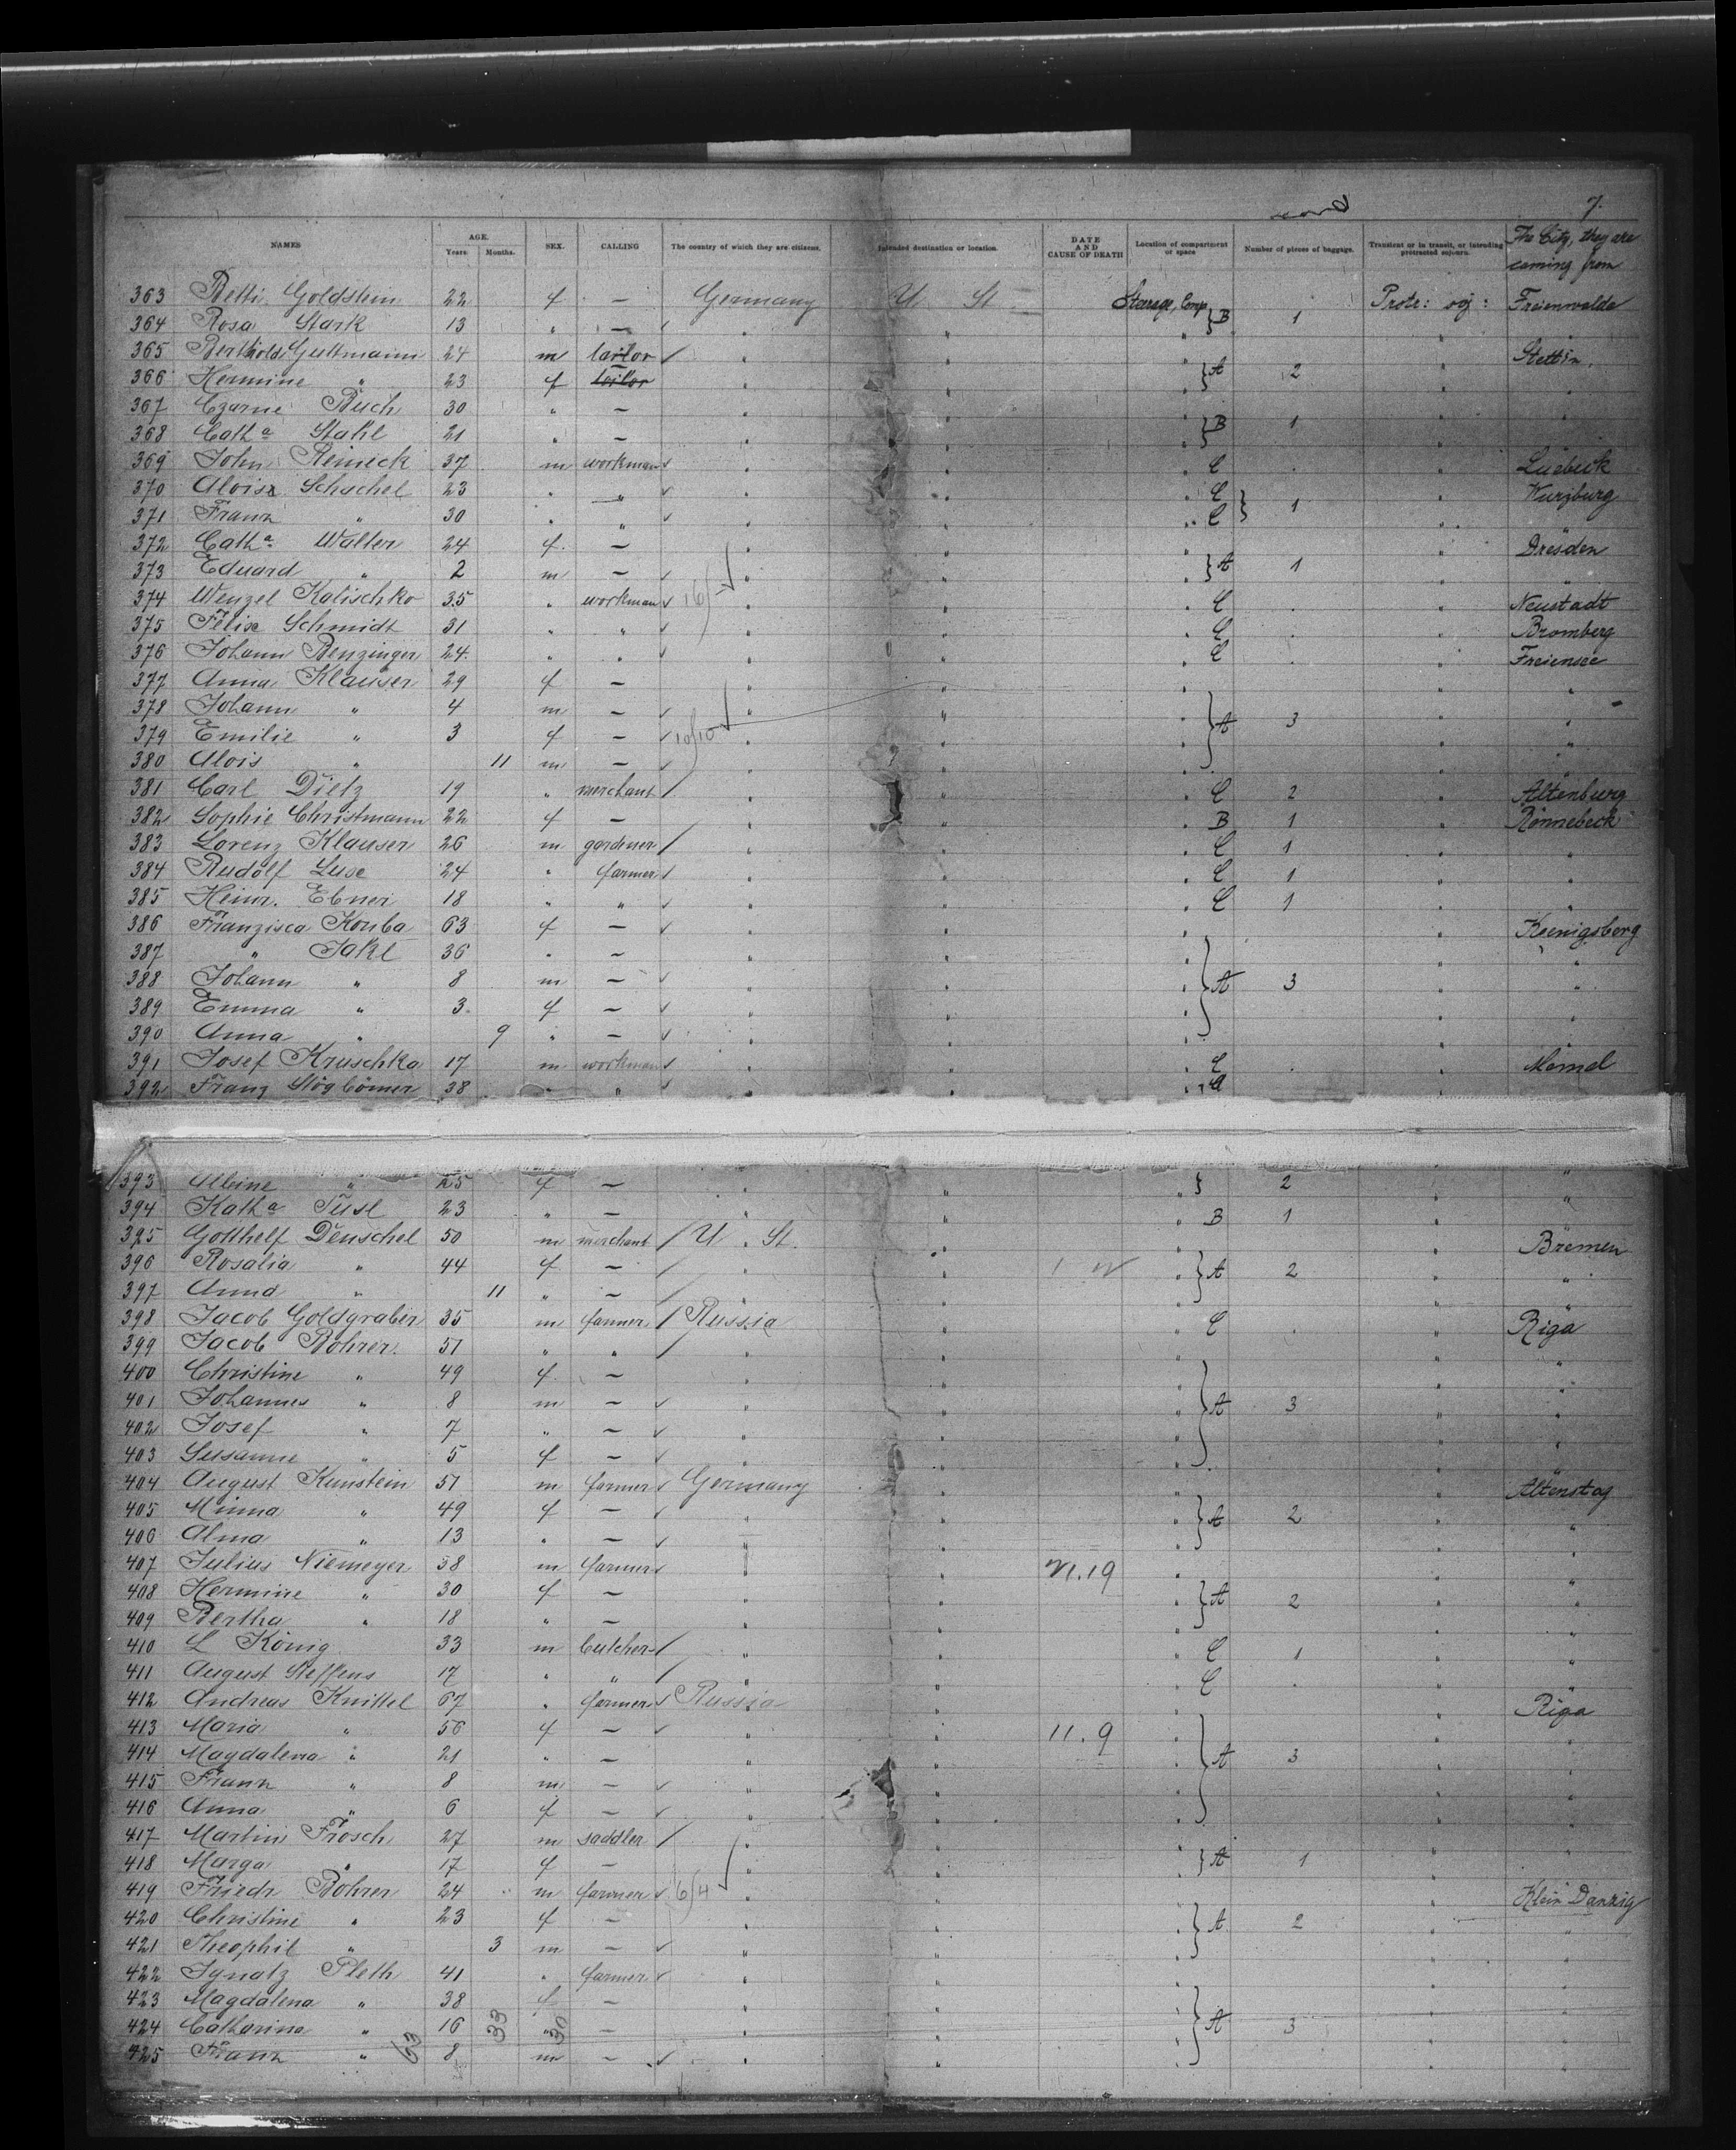 7.
NAMES AGE. Years Months. SEX. CALLING The country of which they are citizens. Intended destination or location. DATE AND CAUSE OF DEATH Location of compartment or space Number of pieces of baggage. Transient or in transit, or intending protracted sojourn. The City, they are coming from
363 Betti Goldstein 22 f — Germany U St Steerage, Comp B 1 Prote: soj: Freienwalde
364 Rosa Stark 13 " — " " " " "
365 Berthold Guttmann 24 m tailor " " " A 2 " Stettin
366 Hermine " 23 f tailor " " " " "
367 Czarne Buch 30 " — " " " B 1 " "
368 Catha Stahl 21 " — " " " " "
369 John Reineck 37 m workman " " " C " Luebeck
370 Alois Schachel 23 " " " " " C 1 " Wurzburg
371 Franz " 30 " " " " " C " "
372 Catha Walter 24 f — " " " A 1 " Dresden
373 Eduard " 2 m — " " " " "
374 Wenzel Kalischko 35 " workman 16/ " " " C " Neustadt
375 Felix Schmidt 31 " " " " " C " Bromberg
376 Johann Benzinger 24 " " " " " C " Freiensee
377 Anna Klauser 29 f — " " " A 3 " "
378 Johann " 4 m — " " " " "
379 Emilie " 3 f — 10/10 " " " " "
380 Alois " 11 m — " " " " "
381 Carl Dietz 19 " merchant " " " C 2 " Altenburg
382 Sophie Christmann 22 f — " " " B 1 " Rönnebeck
383 Lorenz Klauser 26 m gardener " " " C 1 " "
384 Rudolf Luse 24 " farmer " " " C 1 " "
385 Heinr. Ebner 18 " " " " " C 1 " "
386 Franzisca Kouba 63 f — " " " A 3 " Koenigsberg
387 " Jakl 36 " — " " " " "
388 Johann " 8 m — " " " " "
389 Emma " 3 f — " " " " "
390 Anna " 9 " — " " " " "
391 Josef Kruschka 17 m workman " " " C " Memel
392 Franz Stögbömer 38 " " " " " A
393 Albine " 25 f — " " " 2 " "
394 Katha Tusl 23 " — " " " B 1 " "
395 Gotthelf Deuschel 50 m merchant U. St. " " A 2 " Bremen
396 Rosalia " 44 f — " " " " "
397 Anna " 11 " — " " " " "
398 Jacob Goldgraber 35 m farmer Russia " " C " Riga
399 Jacob Bohrer 51 " " " " " A 3 " "
400 Christine " 49 f — " " " " "
401 Johannes " 8 m — " " " " "
402 Josef " 7 " — " " " " "
403 Susanne " 5 f — " " " " "
404 August Kunstein 51 m farmer Germany " " A 2 " Altenstag
405 Minna " 49 f — " " " " "
406 Alma " 13 " — " " " " "
407 Julius Niemeyer 38 m farmer " " VI.19 " A 2 " "
408 Hermine " 30 f — " " " " "
409 Bertha " 18 " — " " " " "
410 L König 33 m butcher " " " C 1 " "
411 August Steffens 17 " " " " " C " "
412 Andreas Knittel 67 " farmer Russia " " A 3 " Riga
413 Maria " 56 f — " " 11.9 " " "
414 Magdalena " 21 " — " " " " "
415 Franz " 8 m — " " " " "
416 Anna " 6 f — " " " " "
417 Martin Frösch 27 m saddler " " " A 1 " "
418 Marga " 17 f — " " " " "
419 Friedr Bohrer 24 m farmer 6/4 " " " A 2 " Klein Danzig
420 Christine " 23 f — " " " " "
421 Theophil " 3 m — " " " " "
422 Ignatz Pleth 41 " farmer " " " A 3 " "
423 Magdalena " 38 f — " " " " "
424 Catharina " 16 " — " " " " "
425 Franz " 8 m — " " " " "
63 33 30